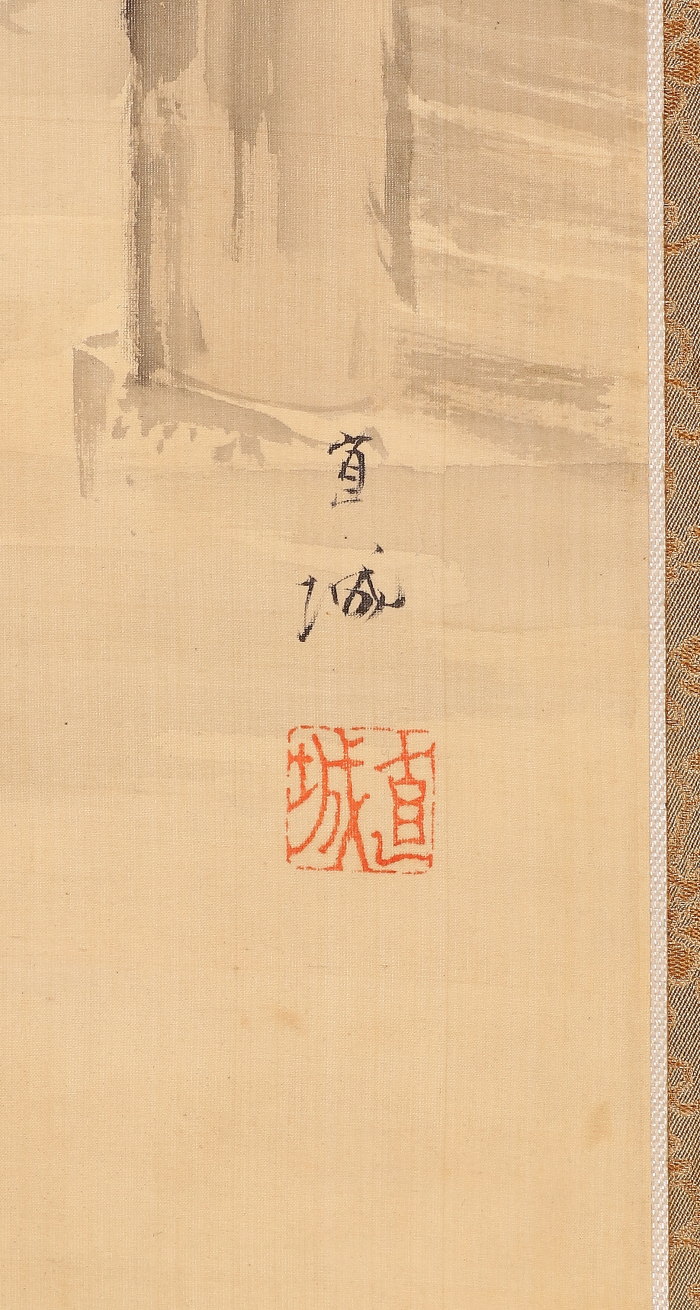 直城
直城